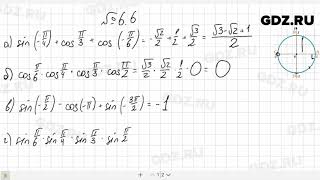 GDZ.RU
№6.6
а) sin(-π/4) + cos π/3 + cos(-π/6) = -√2/2 + 1/2 + √3/2 = (√3-√2+1)/2
б) cos π/6 · cos π/4 · cos π/3 · cos π/2 = √3/2 · √2/2 · 1/2 · 0 = 0
в) sin(-π/2) - cos(-π) + sin(-3π/2) = -1
г) sin π/6 · sin π/4 · sin π/3 · sin π/2
1/2